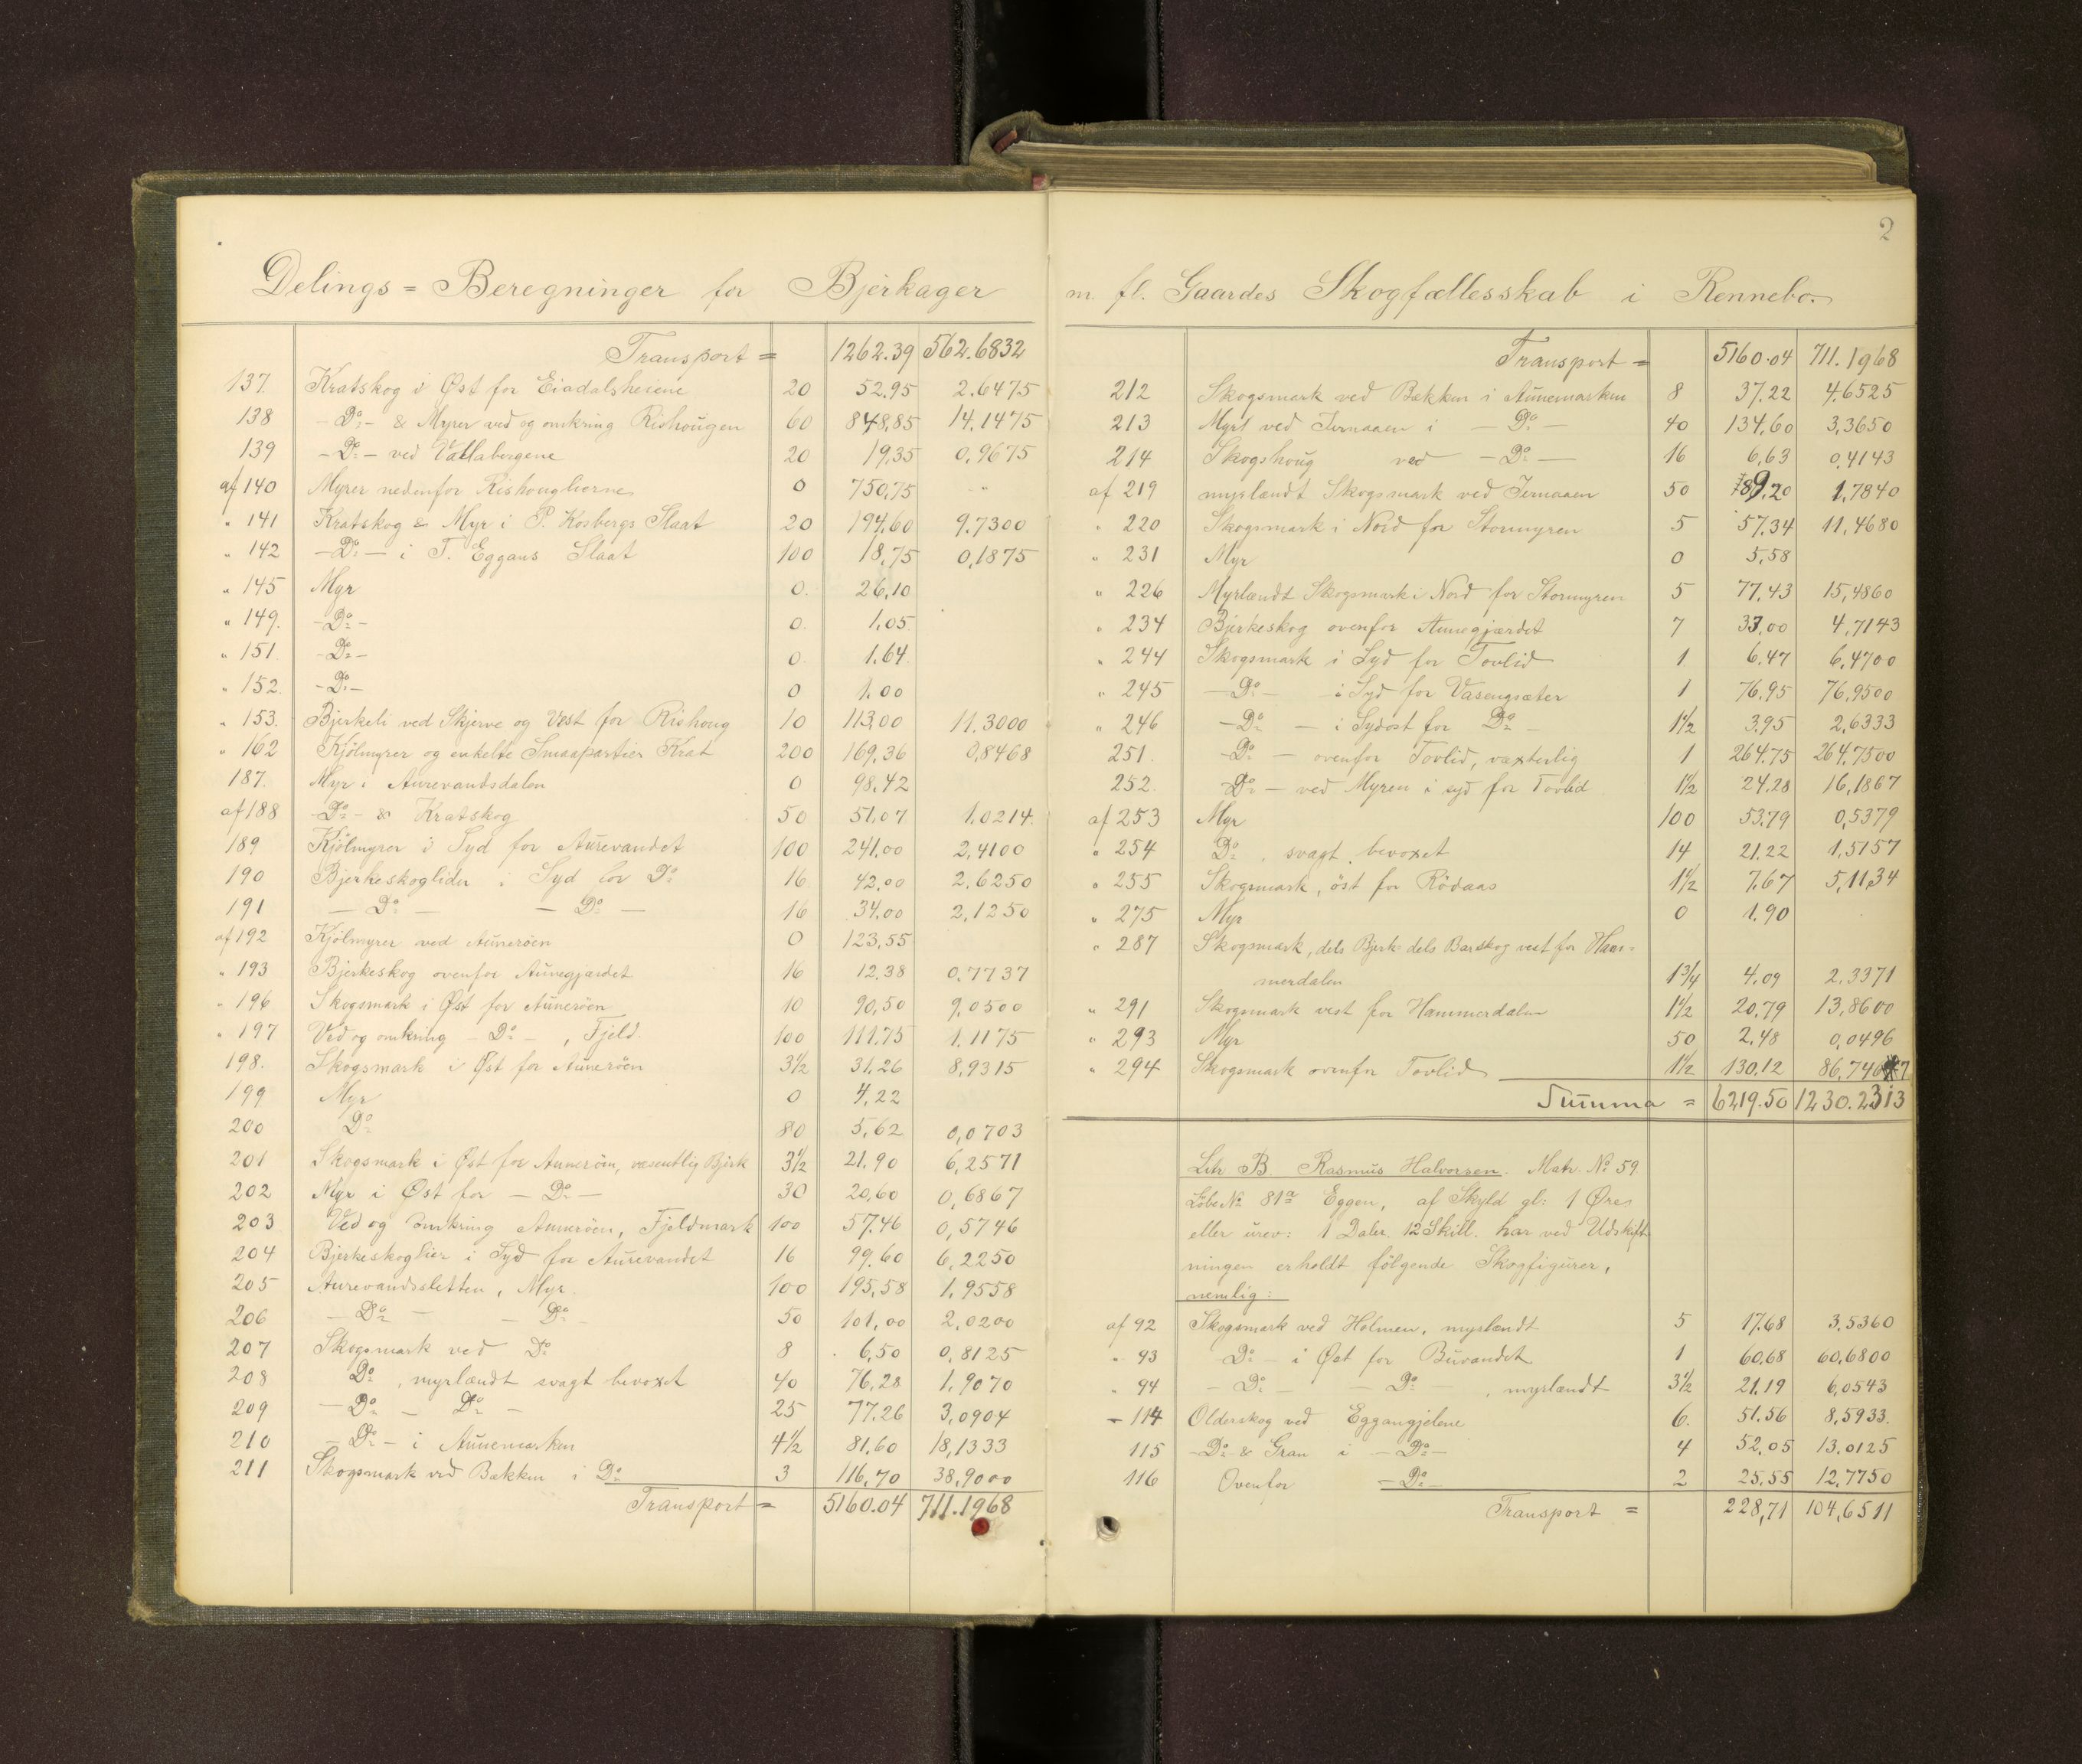 Delings = Beregninger for Bjerkager
Transport = 1262.39 562.6832
137. Kratskog i Øst for Eiadalsheiene 20 52.95 2.6475
138 - Do - & Myrer ved og omkring Rishougen 60 848,85 14.1475
139 - Do - ved Vallabergene 20 19,35 0,9675
af 140 Myrer nedenfor Rishouglierne 0 750,75 "
" 141 Kratskog & Myr i P. Kosbergs Slaat 20 194,60 9.7300
" 142 - Do - i T. Eggans Slaat 100 18,75 0,1875
" 145 Myr 0. 26,10
" 149. - Do - 0. 1,05
" 151 - Do - 0. 1.64
" 152. - Do - 0 1.00
" 153. Bjerkeli ved Skjerve og Vest for Rishoug 10 113,00 11.3000
" 162 Kjölmyrer og enkelte Smaapartier Krat 200 169,36 0,8468
187. Myr i Aurevandsdalen 0 98.42
af 188 - Do - & Kratskog 50 51,07 1.0214
189 Kjölmyrer i Syd for Aurevandet 100 241,00 2,4100
190 Bjerkeskoglider i Syd for Do 16 42,00 2,6250
191 - Do - - Do - 16 34,00 2,1250
af 192 Kjölmyrer ved Auneröen 0 123,55
" 193 Bjerkeskog ovenfor Aunegjærdet 16 12,38 0,7737
" 196 Skogsmark i Øst for Auneröen 10 90,50 9,0500
" 197 Ved og omkring - Do - , Fjeld. 100 111.75 1.1175
198. Skogsmark i Øst for Auneröen 3½ 31,26 8,9315
199 Myr 0 4,22
200 Do 80 5,62 0,0703
201 Skogsmark i Øst for Auneröen, væsentlig Bjerk 3½ 21.90 6,2571
202 Myr i Øst for - Do - 30 20,60 0,6867
203 Ved og omkring Auneröen, Fjeldmark 100 57.46 0,5746
204 Bjerkeskoglier i Syd for Aurevandet 16 99,60 6,2250
205 Aurevandssletten, Myr. 100 195,58 1,9558
206 - Do - - Do - 50 101,00 2,0200
207 Skogsmark ved Do 8 6,50 0,8125
208 Do , myrlændt svagt bevoxet 40 76,28 1,9070
209 - Do - Do - 25 77.26 3,0904
210 - Do - i Aunemarken 4½ 81,60 18,1333
211 Skogsmark ved Bækken i Do 3 116,70 38,9000
Transport = 5160.04 711.1968
2
m. fl. Gaardes Skogfællesskab i Rennebo.
Transport = 5160.04 711.1968
212 Skogsmark ved Bækken i Aunemarken 8 37,22 4,6525
213 Myrl ved Jernaaen i - Do - 40 134,60 3,3650
214 Skogshoug ved - Do - 16 6,63 0,4143
af 219 myrlændt Skogsmark ved Jernaaen 50 89,20 1,7840
" 220 Skogsmark i Nord for Stormyren 5 57,34 11,4680
" 231 Myr 0 5,58
" 226 Myrlændt Skogsmark i Nord for Stormyren 5 77,43 15,4860
" 234 Bjerkeskog ovenfor Aunegjærdet 7 33,00 4,7143
" 244 Skogsmark i Syd for Tovlid 1 6.47 6,4700
" 245 - Do - i Syd for Vasengsæter 1 76.95 76,9500
" 246 - Do - i Sydost for Do - 1½ 3,95 2,6333
251. - Do - ovenfor Tovlid, vaxterlig 1 264.75 264,7500
252. - Do - ved Myren i syd for Tovlid 1½ 24,28 16,1867
af 253 Myr 100 53,79 0,5379
" 254 Do , svagt bevoxet 14 21.22 1,5157
" 255 Skogsmark, öst for Rödaas 1½ 7,67 5,1134
" 275 Myr 0 1.90
" 287 Skogsmark, dels Bjerk dels Barskog vest for Ham-
merdalen 1¾ 4,09 2,3371
" 291 Skogsmark vest for Hammerdalen 1½ 20,79 13,8600
" 293 Myr 50 2,48 0,0496
" 294 Skogsmark ovenfor Tovlid 1½ 130,12 86,7467
Summa = 6219.50 1230.2313
Litr B. Rasmus Halvorsen. Matr. No 59
Löbe No 81a Eggen, af Skyld gl: 1 Øre
eller urev: 1 Daler 12 Skill. har ved Udskift-
ningen erholdt fölgende Skogfigurer,
nemlig:
af 92 Skogsmark ved Holmen, myrlændt 5 17.68 3.5360
" 93 Do - i Øst for Buvandet 1 60,68 60,6800
" 94 - Do - - Do - , myrlændt 3½ 21.19 6,0543
- 114 Olderskog ved Eggangjelene 6. 51.56 8,5933.
115 - Do - & Gran i - Do - 4 52,05 13,0125
116 Ovenfor - Do - 2 25,55 12,7750
Transport = 228,71 104,6511